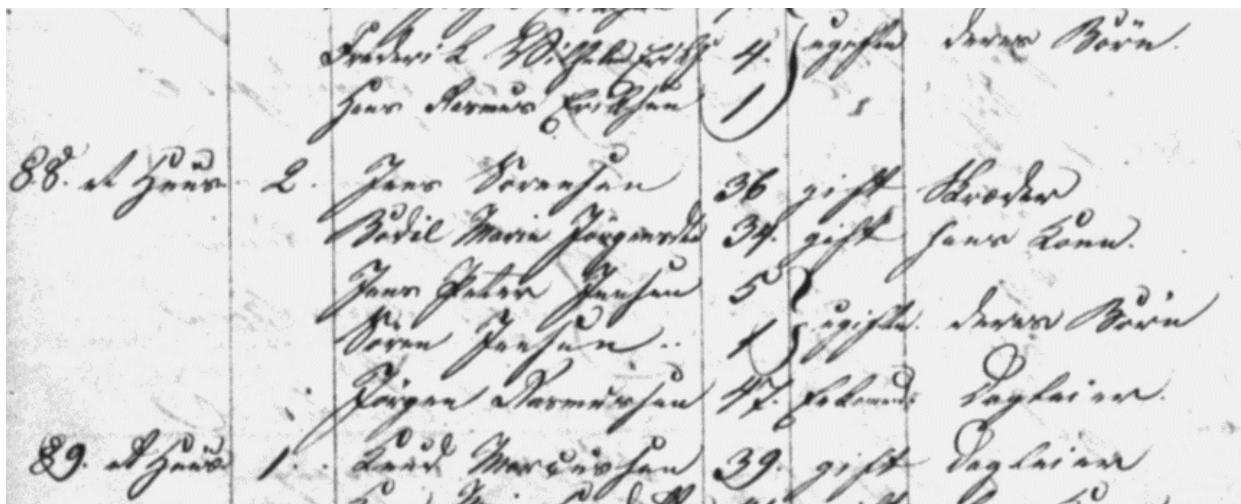 Frederik Wilhelm Eriks 4. ugifte deres Börn.
Hans Rasmus Eriksen 1
88. et Huus 2. Jens Sörensen 36 gift Skræder
Bodil Marie Jörgensdt 34. gift hans Kone.
Jens Peter Jensen 5
Sören Jensen .. 1 ugifte. deres Börn
Jörgen Rasmussen 47. Enkemd: Dagleier.
89. et Huus 1. Knud Marcussen 39. gift Dagleier